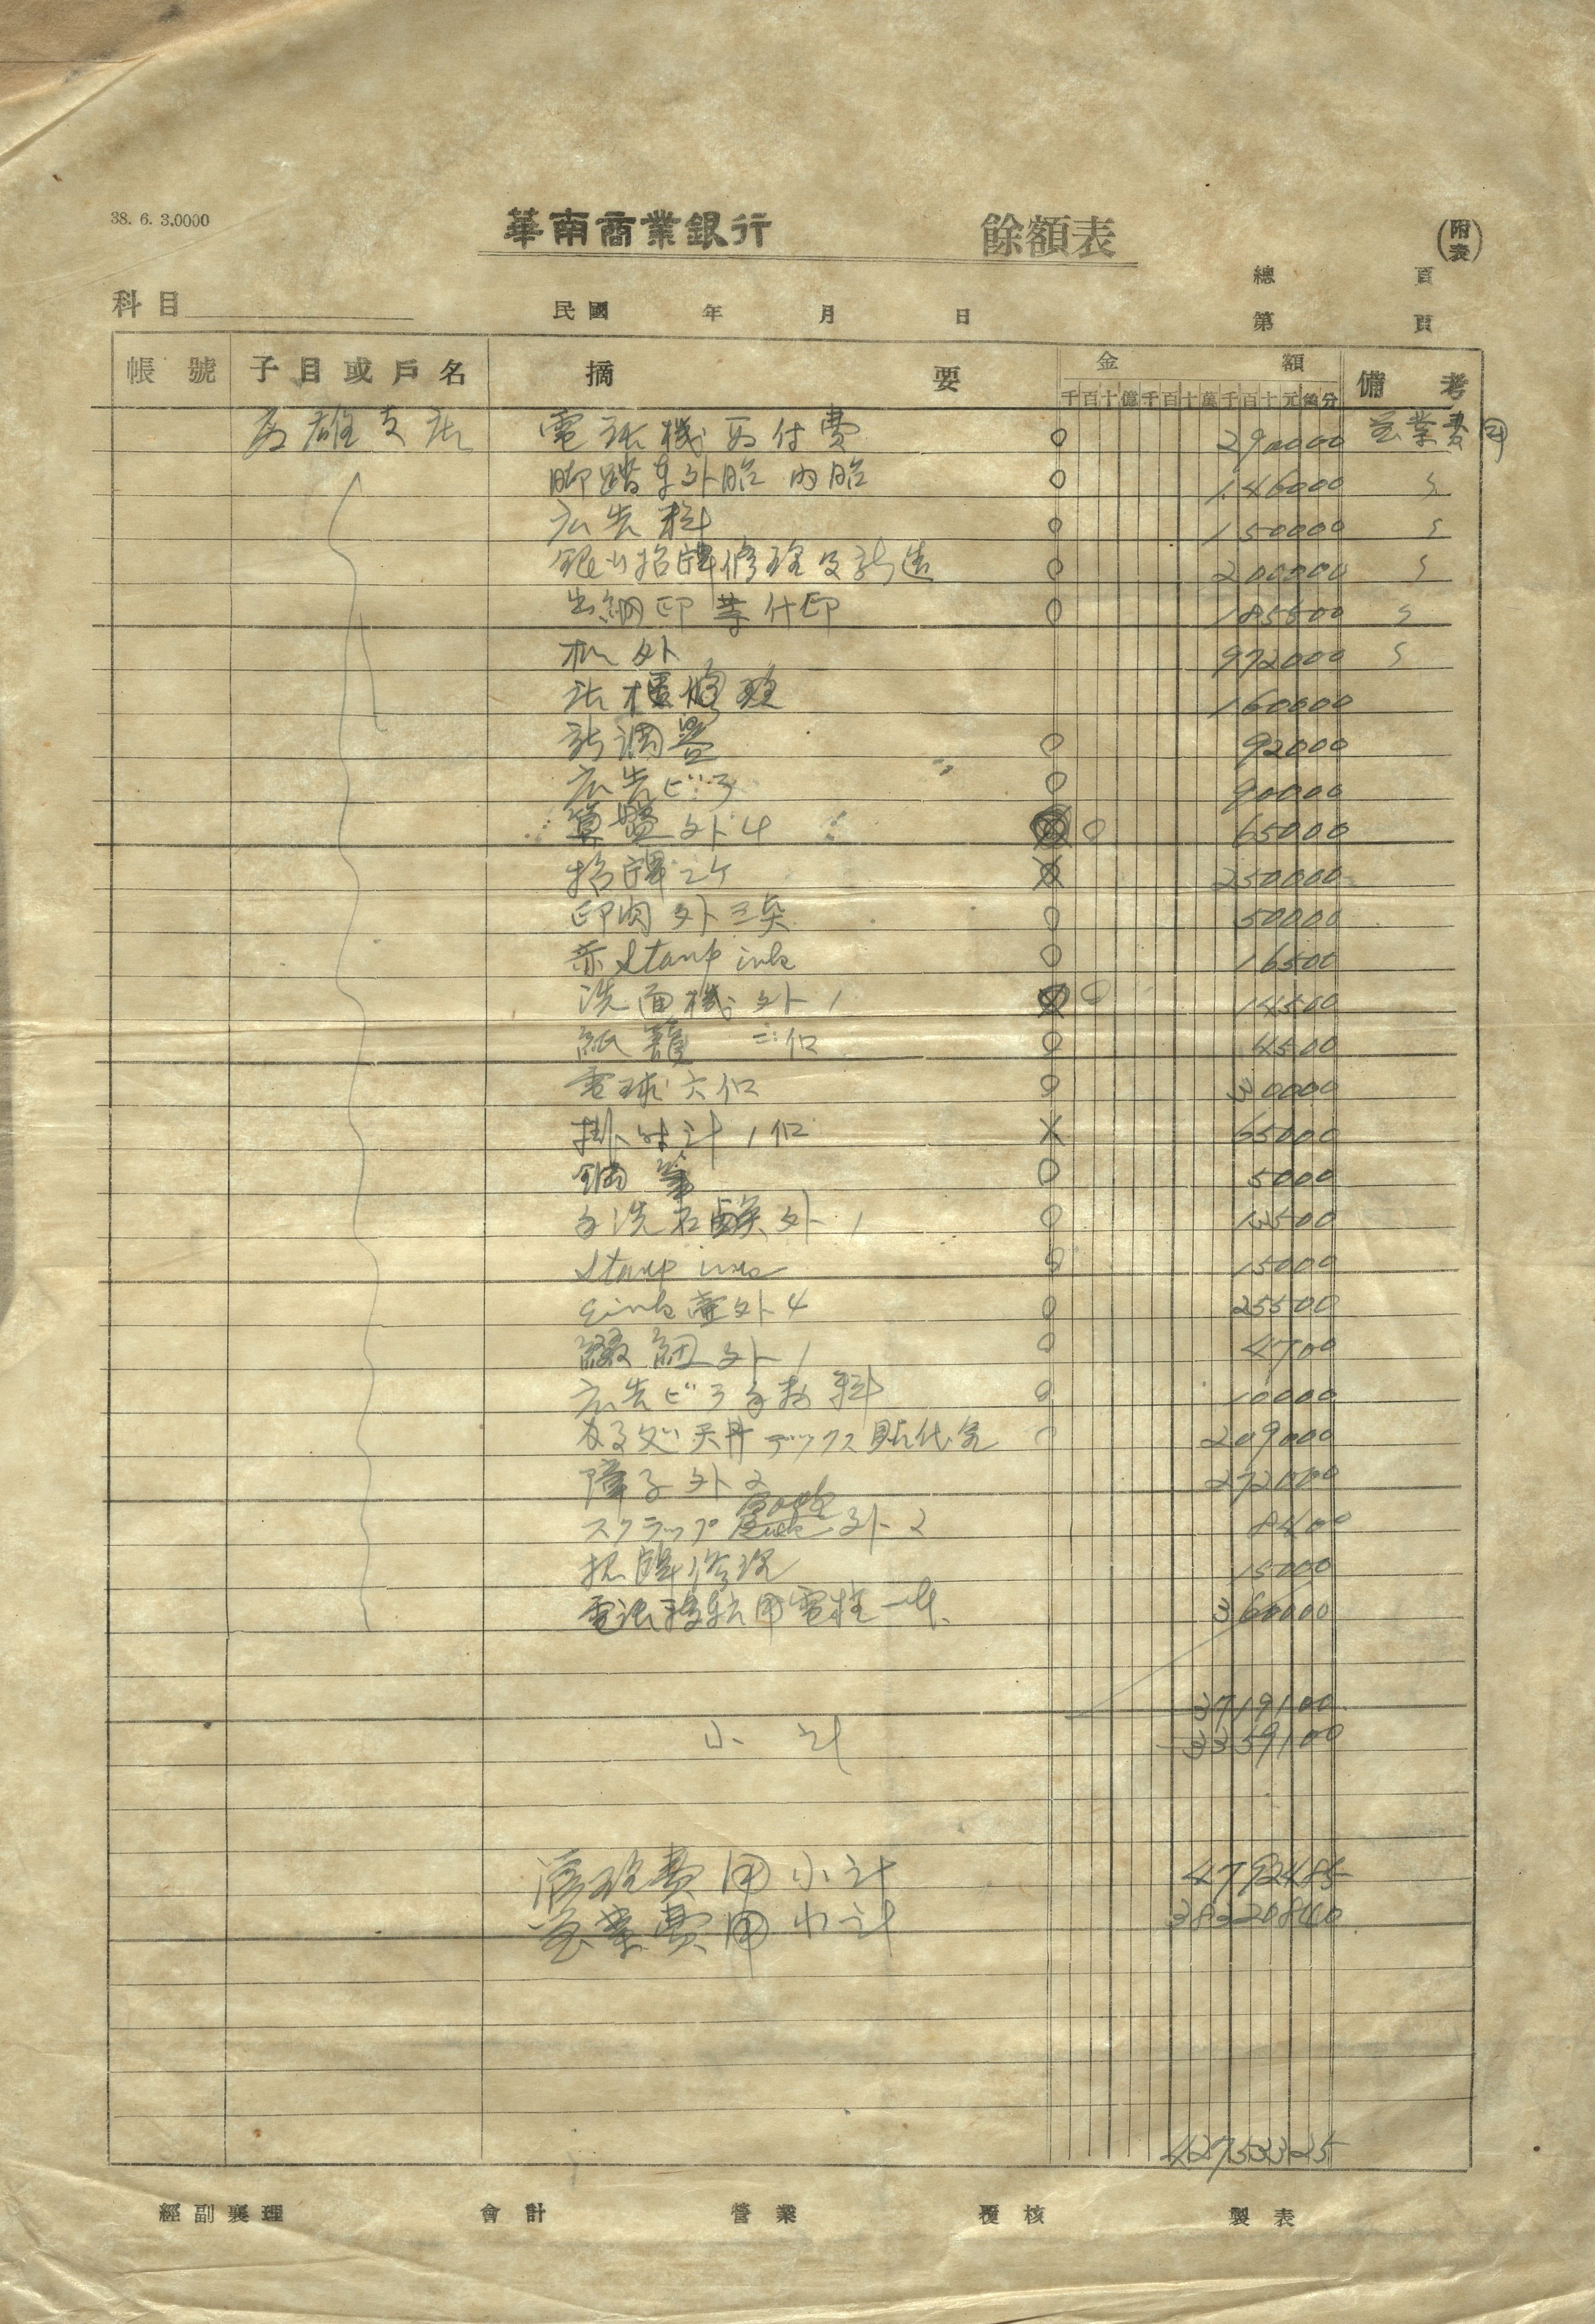 38. 6. 3.0000
華南商業銀行 餘額表 (附表)
總 頁
科目 民國 年 月 日 第 頁
帳號 子目或戶名 摘要 金額 備考
千百十億千百十萬千百十元角分
高雄支店 電話機取付費 290000 営業費用
脚踏車外胎内胎 146000 〃
広告料 150000 〃
招牌修理及新造 200000 〃
出納印 185500 〃
机外 972000 〃
修理 160000
新調器 92000
広告ビラ 90000
算盤外4 65000
招牌2ケ 250000
印肉外三矣 50000
赤Stamp ink 16500
洗面機外1 14500
紙籠 4500
電球六個 30000
掛時計1個 65000
5000
手洗石鹸外1 13500
Stamp ink 15000
ink 壷外4 25500
綴紐外1 4700
広告ビラ手数料 10000
天井テックス貼代金 209000
障子外2 272000
スクラップ Book 外2 8400
招牌修理 15000
電話移転用電柱一本 360000
3719100
小計 3359100
費用小計 4792485
営業費用小計 38220840
42753325
經副襄理 會計 營業 覆核 製表